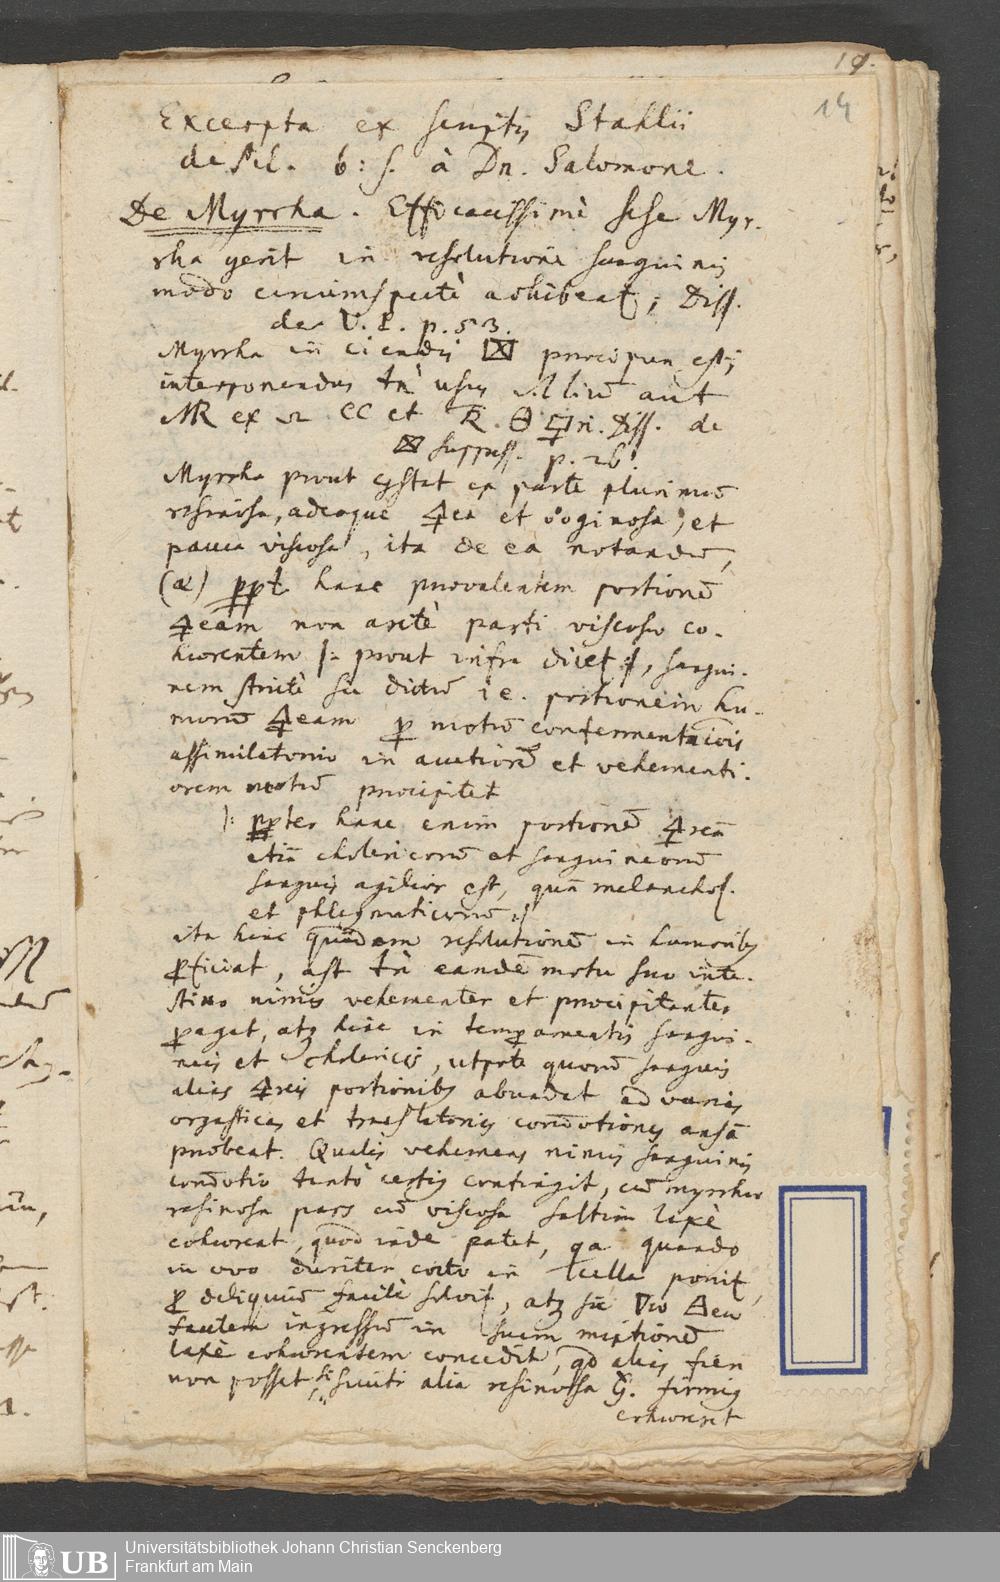 19.
14
Excerpta ex scriptis Stahlii
de Pil. b: s. à Dn. Salomone.
De Myrrha. Efficacissimè sese Myr-
rha gerit in resolutione sanguinis
modo circumspectè adhibeat; Diss.
de V. P. p. 53.
Myrrha in ciendis praecipua est;
interponendus tn usus aut
ex CC et Diss. de
suppress. p. 26.
Myrrha prout constat ex parte plurimum
resinosa, adeoque 🜍ea et oleoginosa, et
pauca viscosa, ita de ea notandum,
(α) ppt hanc praevalentem portionem
🜍eam non arctè parti viscosae co-
haerentem |: prout infra dicet :|, sangui-
nem strictè sic dictum i e. portionem hu-
morum 🜍eam p motum confermentationis
assimilatorio in auctiorem et vehementi-
orem motum praecipitet
|: ppter hanc enim portionem 🜍ream
etiam cholericorum et sanguineorum
sanguis agilior est, quam melanchol.
et phlegmaticorum :|
ita hinc quidem resolutionem in humoribus
perficiat, ast tn eandem motu suo inte-
stino nimis vehementer et praecipitanter
peragat, atq hinc in temperamentis sangui-
neis et cholericis, utpote quorum sanguis
alias 🜍reis portionibus abundat ad varias
orgasticas et translatorias commotiones ansam
praebeat. Qualis vehemens nimis sanguinis
commotio tanto certius contingit, cum myrrhae
resinosa pars cum viscosa saltim laxè
cohaereat, quod inde patet, qa quando
in ovo duriter cocto in cella ponit,
p deliquium facilè solvit, atq sic 🜄 🜂ea
facilem ingressum in suam mixtionem
laxè cohaerentem concedit, qd alias fieri
non posset, si sicuti alia resinosa G. firmius
cohaereret
Universitätsbibliothek Johann Christian Senckenberg
Frankfurt am Main
UB